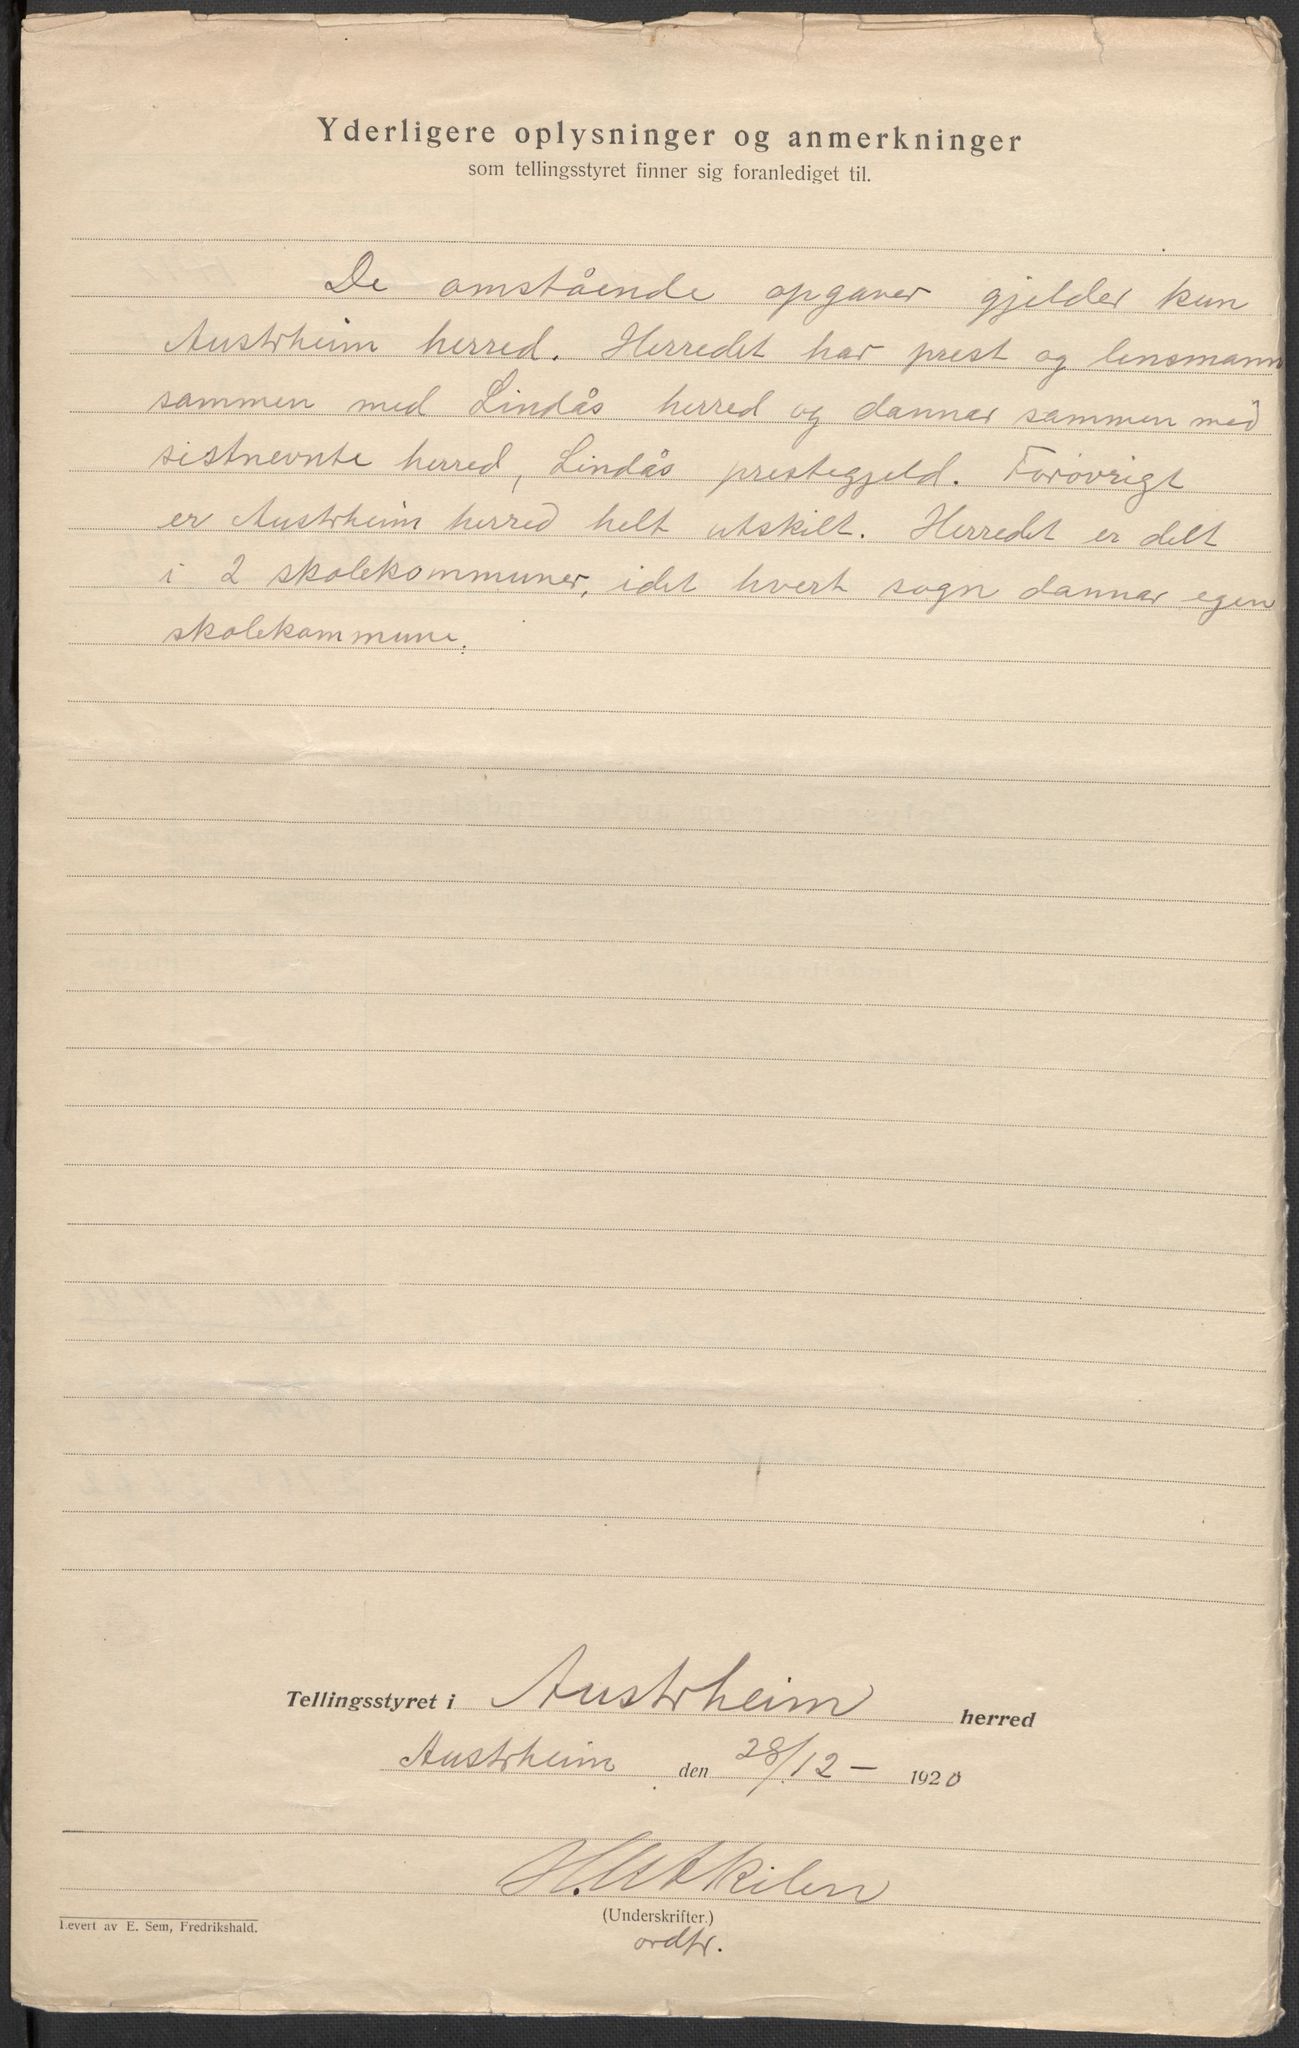 Yderligere oplysninger og anmerkninger
som tellingsstyret finner sig foranlediget til.
De omstående opgaver gjelder kun
Austrheim herred. Herredet har prest og lensmann
sammen med Lindås herred og dannar sammen med
sistnevnte herred, Lindås prestegjeld. Forøvrigt
er Austrheim herred helt utskilt. Herredet er delt
i 2 skolekommuner, idet hvert sogn dannar egen
skolekommune.
Tellingsstyret i Austrheim herred
Austrheim den 28/12 - 1920
H. Utkilen
(Underskrifter.)
ordfr.
Levert av E. Sem, Fredrikshald.